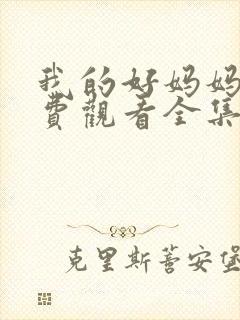 我的好妈妈
费觀看全集
克里斯蒂安堡